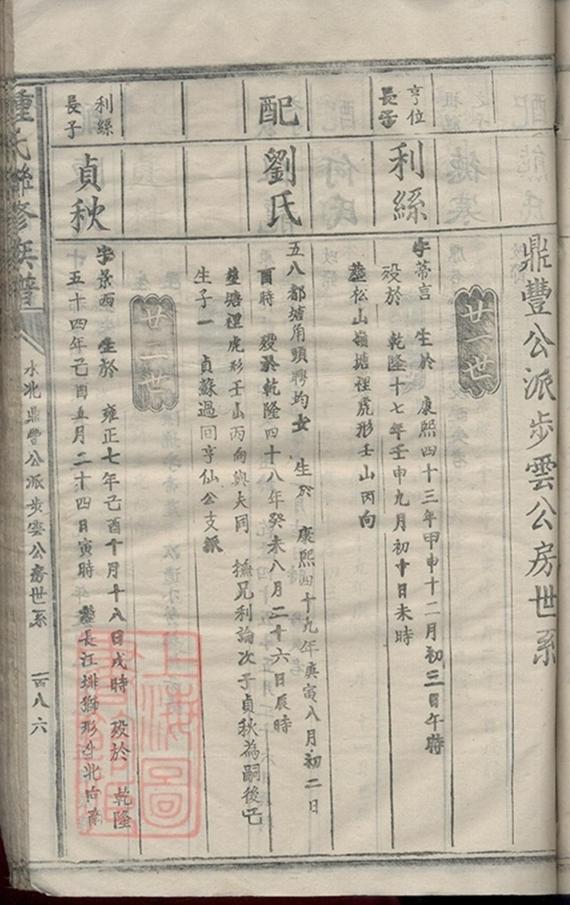 鼎豐公派步雲公房世系
廿一世
亨位
長子
利絲
字蒂言 生於 康熙四十三年甲申十二月初三日午時
歿於 乾隆十七年壬申九月初十日未時
葬松山嶺塘裡虎形壬山丙向
配
劉氏
五八都塘角頭聘均女 生於 康熙四十九年庚寅八月初二日
酉時 歿於乾隆四十八年癸未八月二十六日辰時
葬塘裡虎形壬山丙向與夫同 撫兄利論次子貞秋為嗣後已
生子一 貞蘇過回亨仙公支派
廿二世
利絲
長子
貞秋
字景西 生於 雍正七年己酉十月十八日戌時 歿於 乾隆
五十四年己酉五月二十四日寅時 葬長江排獅形
北向
鍾氏聯修族譜
水北鼎豐公派步雲公房世系
一百八六
上海圖